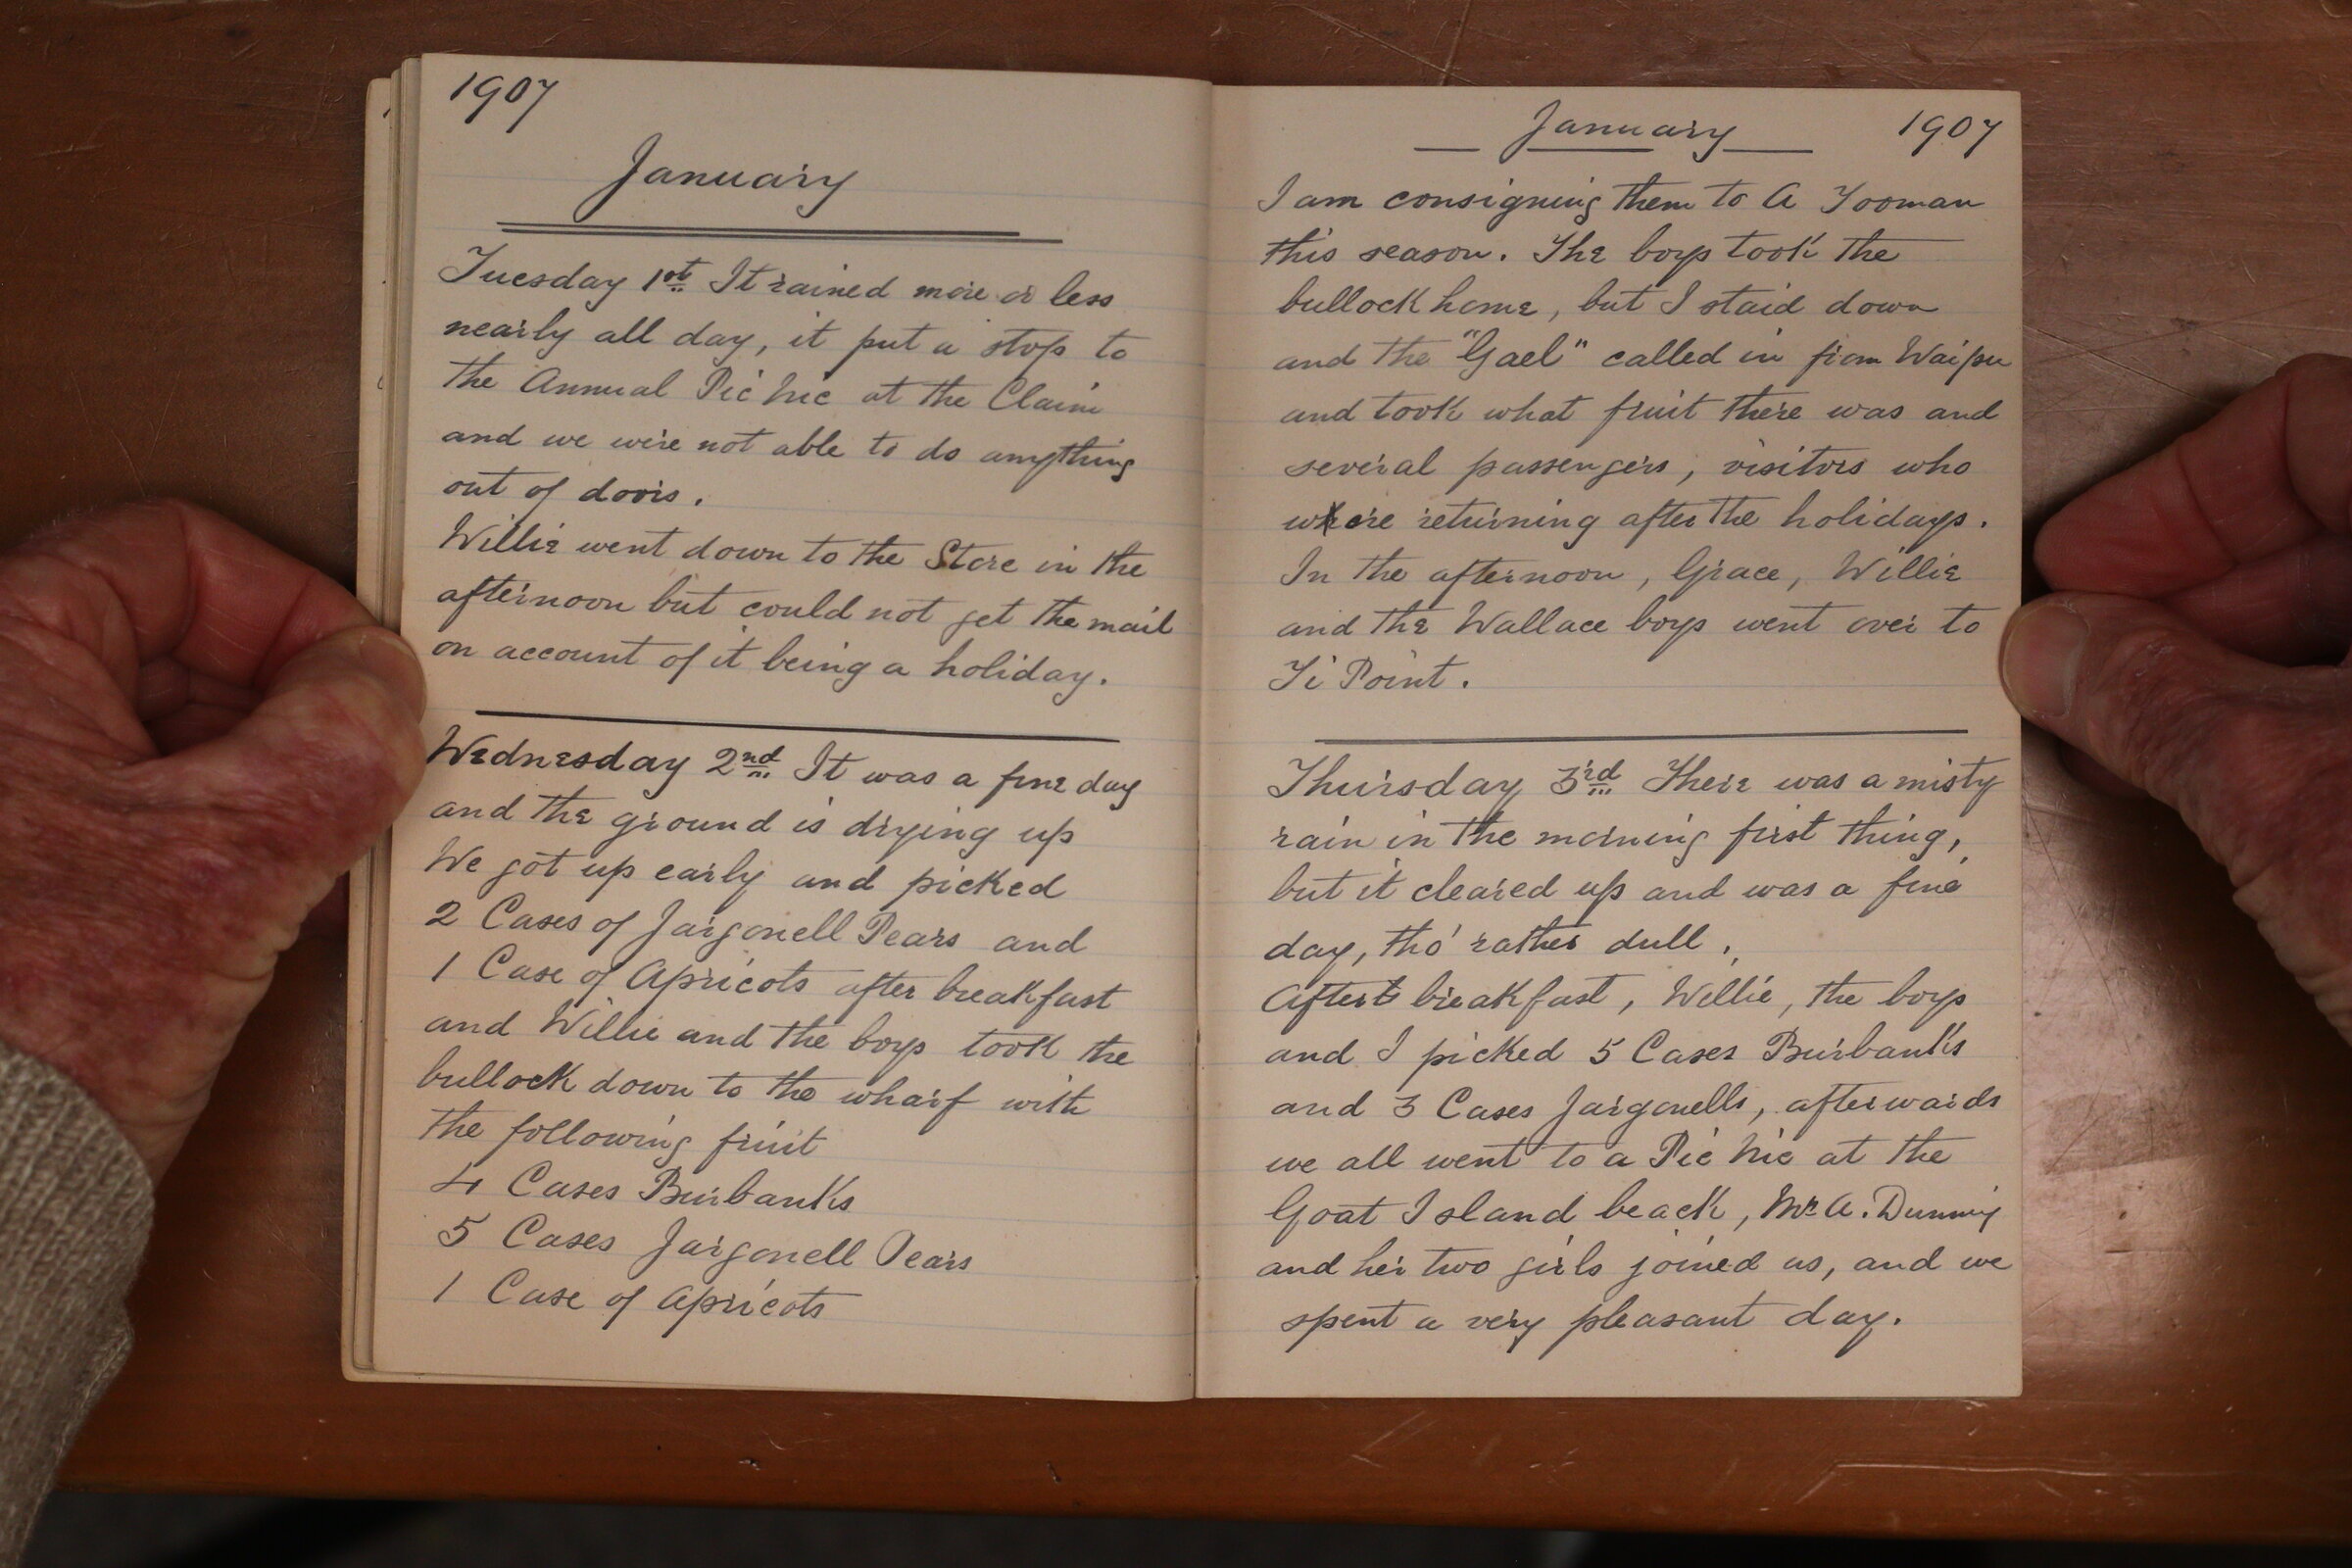 1907
January
Tuesday 1st It rained more or less
nearly all day, it put a stop to
the Annual Pic Nic at the Claim
and we were not able to do anything
out of doors.
Willie went down to the Store in the
afternoon but could not get the mail
on account of it being a holiday.
Wednesday 2nd It was a fine day
and the ground is drying up
We got up early and picked
2 Cases of Jargonell Pears and
1 Case of Apricots after breakfast
and Willie and the boys took the
bullock down to the wharf with
the following fruit
4 Cases Burbanks
5 Cases Jargonell Pears
1 Case of Apricots
January 1907
I am consigning them to A Yooman
this season. The boys took the
bullock home, but I staid down
and the "Gael" called in from Waipu
and took what fruit there was and
several passengers, visitors who
were returning after the holidays.
In the afternoon, Grace, Willie
and the Wallace boys went over to
Ti Point.
Thursday 3rd There was a misty
rain in the morning first thing,
but it cleared up and was a fine
day, tho' rather dull.
After breakfast, Willie, the boys
and I picked 5 Cases Burbanks
and 3 Cases Jargonells, afterwards
we all went to a Pic Nic at the
Goat Island beach, Mrs A. Dunning
and her two girls joined us, and we
spent a very pleasant day.